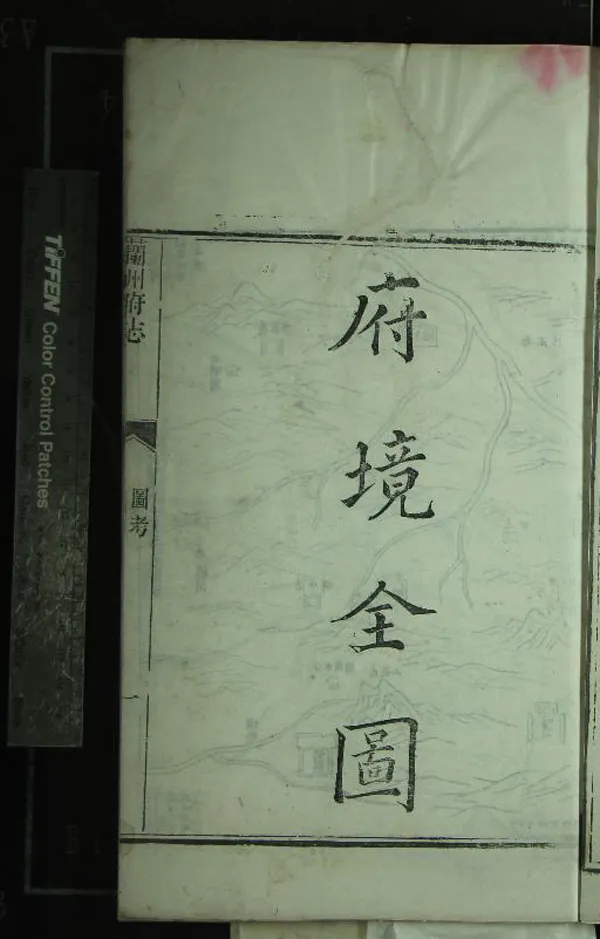 府境全圖
蘭州府志
圖考
一
TIFFEN Color Control Patches